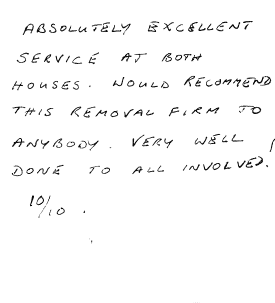 ABSOLUTELY EXCELLENT
SERVICE AT BOTH
HOUSES. WOULD RECOMMEND
THIS REMOVAL FIRM TO
ANYBODY. VERY WELL
DONE TO ALL INVOLVED.
10/10.